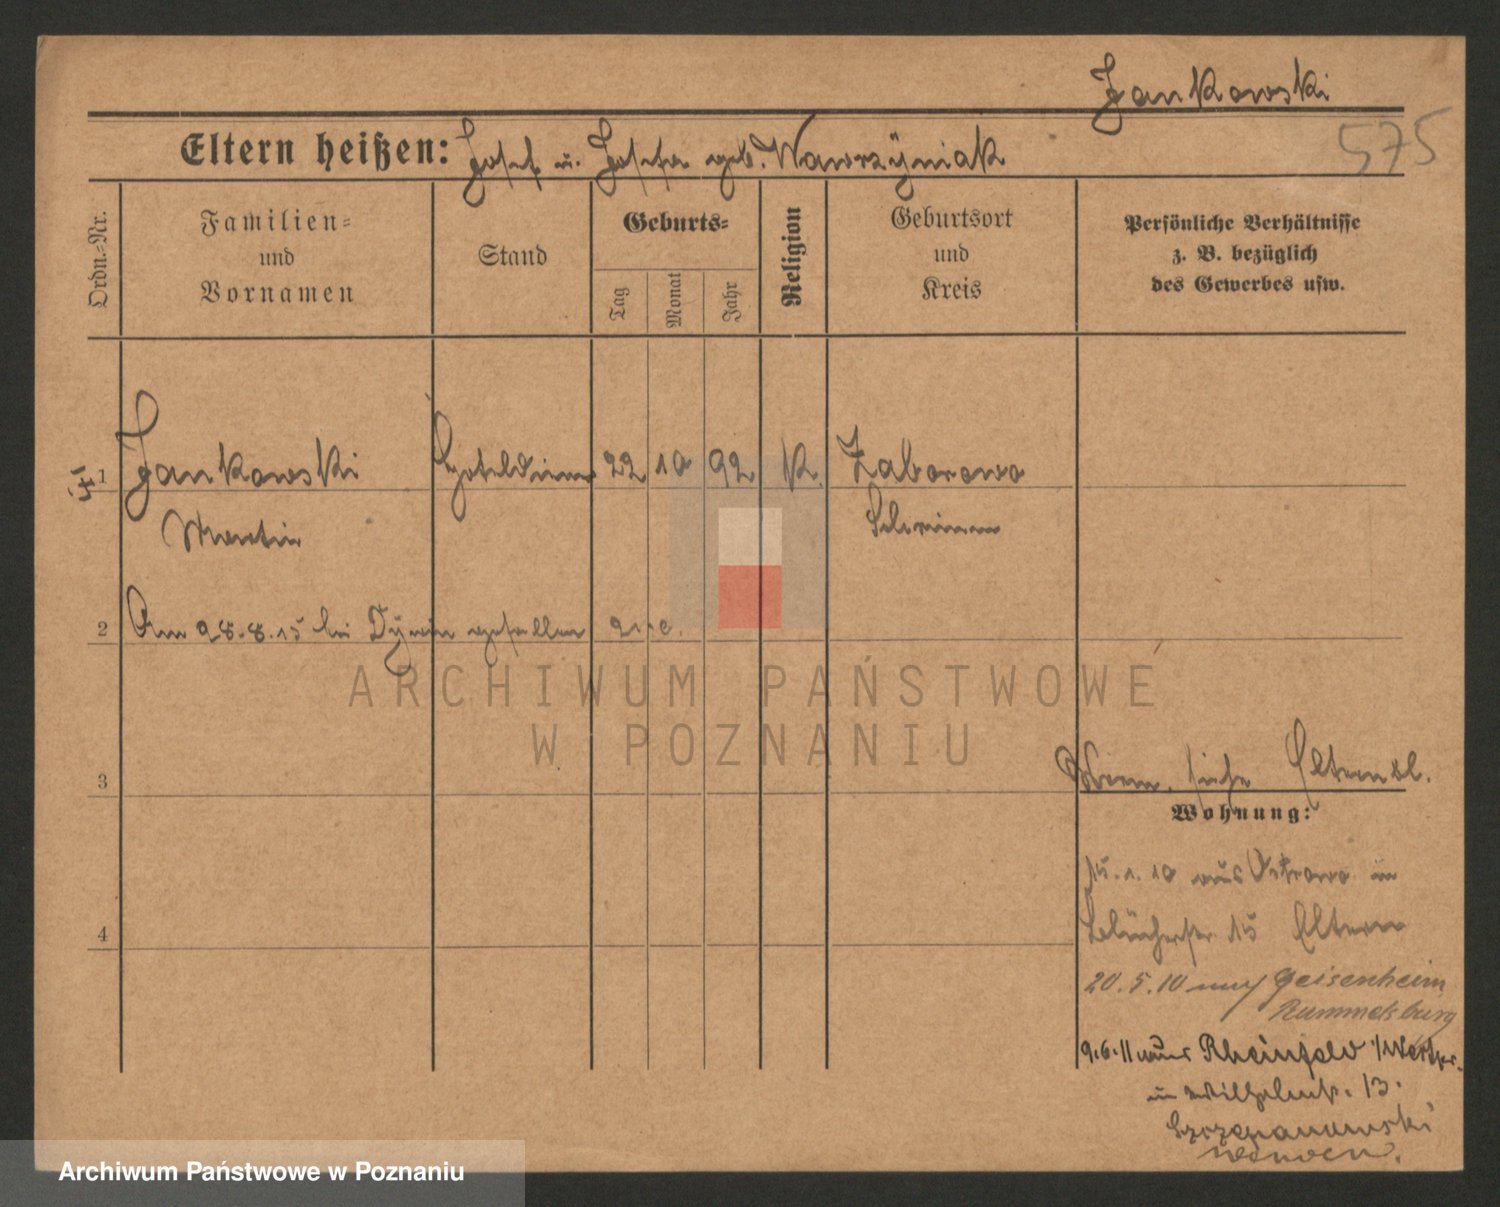 Jankowski
575
Eltern heißen: Josef u. Josefa geb. Wawrzÿniak
Ordn.-Nr.
Familien-
und
Vornamen
Stand
Geburts-
Tag
Monat
Jahr
Religion
Geburtsort
und
Kreis
Persönliche Verhältnisse
z. B. bezüglich
des Gewerbes usw.
1
Jankowski Hoteldiener 22 10 92 K. Zaborowo
Martin Schrimm
2
Am 28.8.15 bei gefallen
ARCHIWUM PAŃSTWOWE
W POZNANIU
3
siehe Elternbl.
Wohnung:
4
15.1.10 aus Ostrowo in
Blücherstr. 15 Eltern
20.5.10 nach Geisenheim
Rummelsburg
9.6.11 aus Rheinfeld /Westpr.
in Wilhelmstr. 13.
Szczepanowski
Archiwum Państwowe w Poznaniu